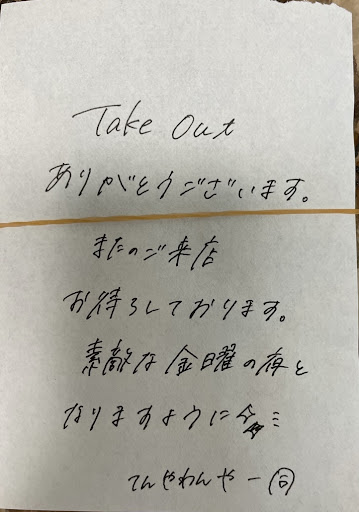 Take Out
ありがとうございます。
またのご来店
お待ちしております。
素敵な金曜の夜と
なりますように
てんやわんや一同